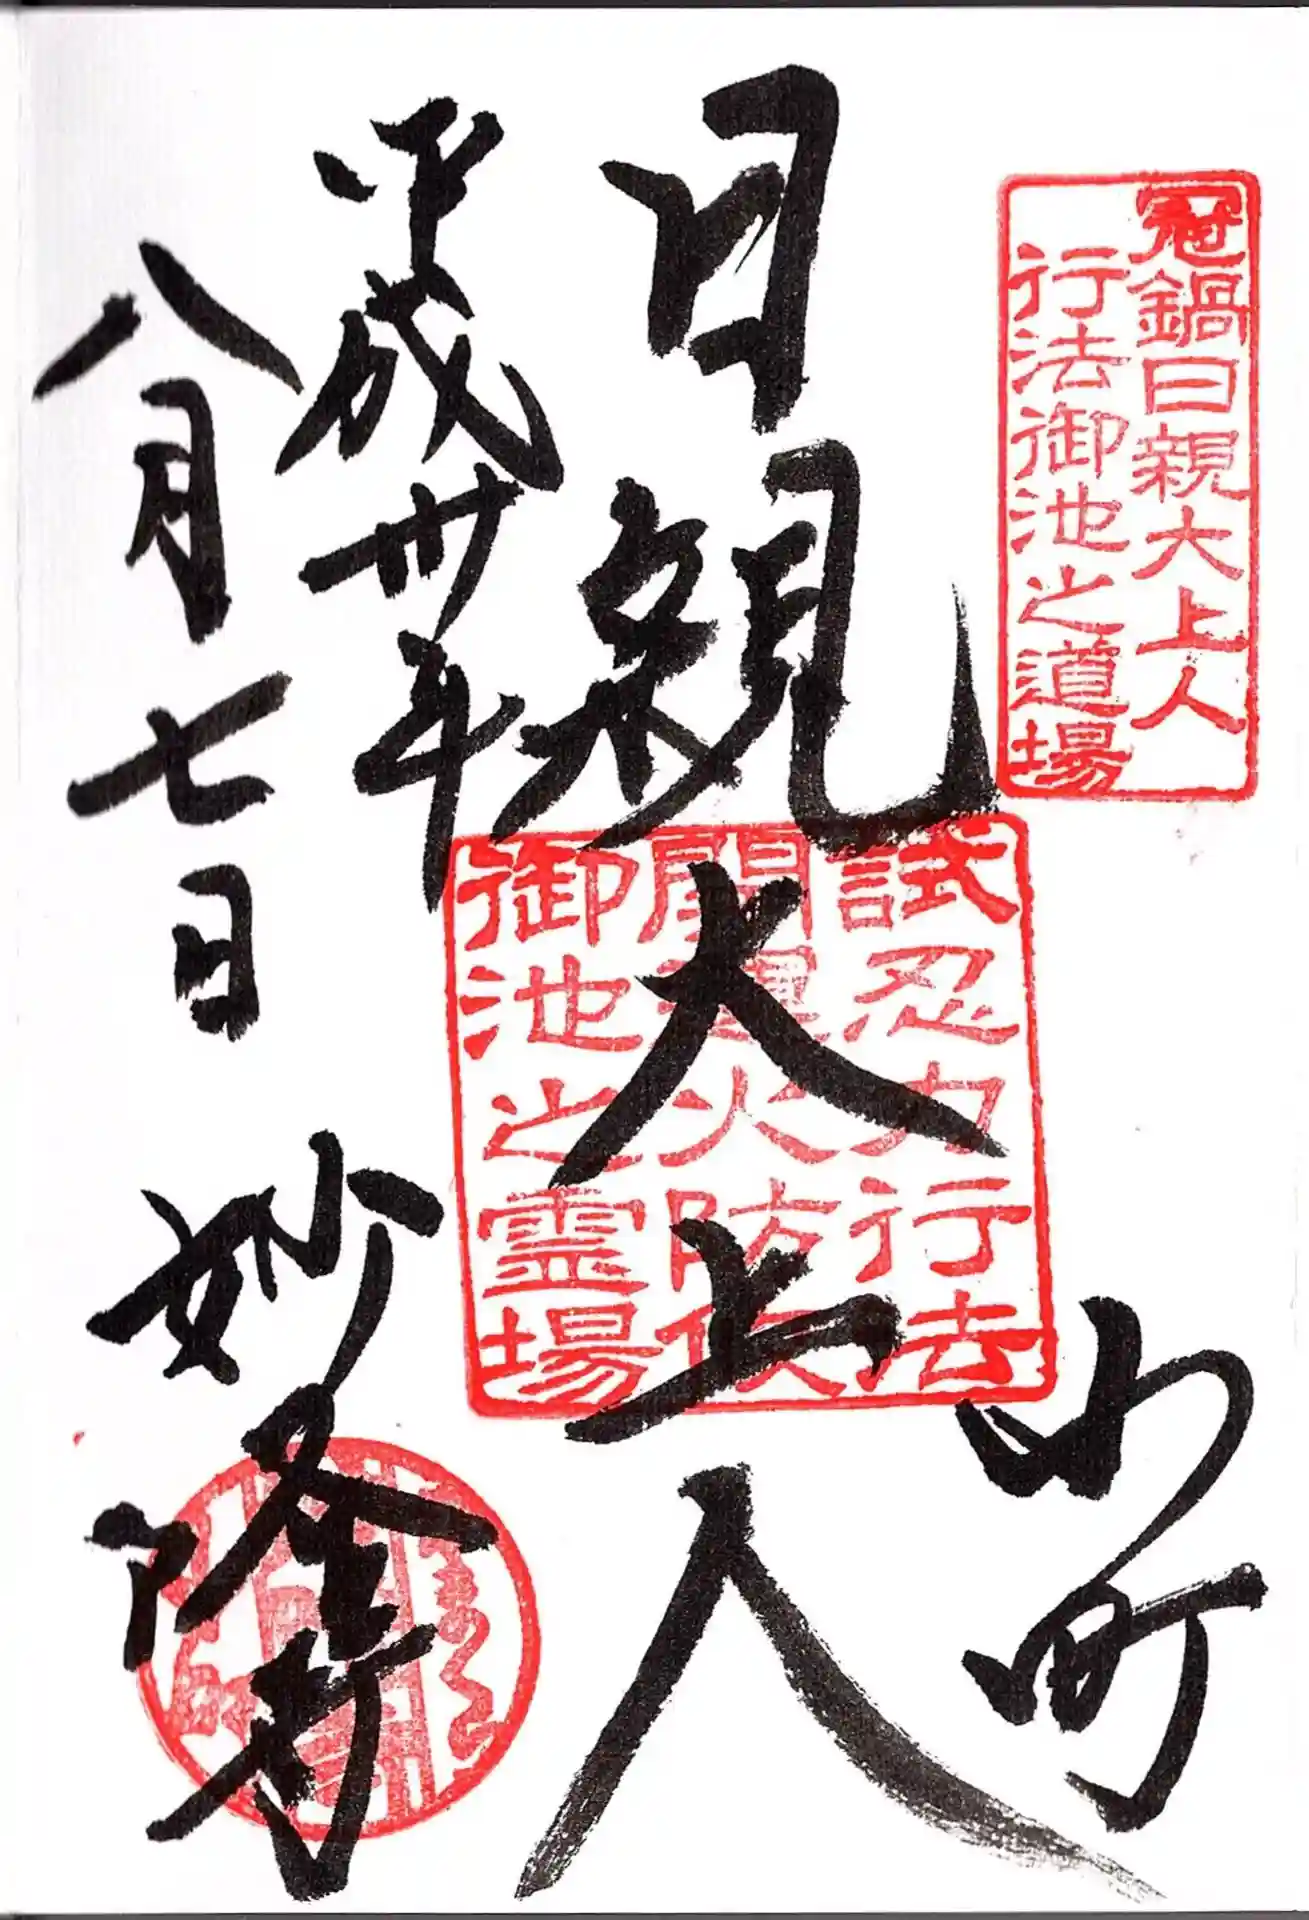 冠鍋日親大上人
行法御池之道場
小町
日親大上人
試忍力行法
開運火防伏
御池之霊場
平成卅年
八月七日
妙隆寺